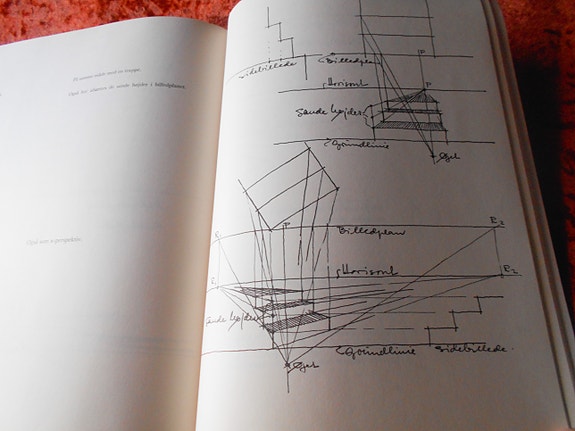 På samme måde med en trappe.
Også her afsættes de sande højder i billedplanen.
Også som x-perspektiv.
sidebillede
Billedplan
P
Horisont
P
Sande højder
Grundlinie
Øjet
P
R.
R.2
Billedplan
Horisont
R.
R.2
Sande højder
Grundlinie
sidebillede.
Øjet